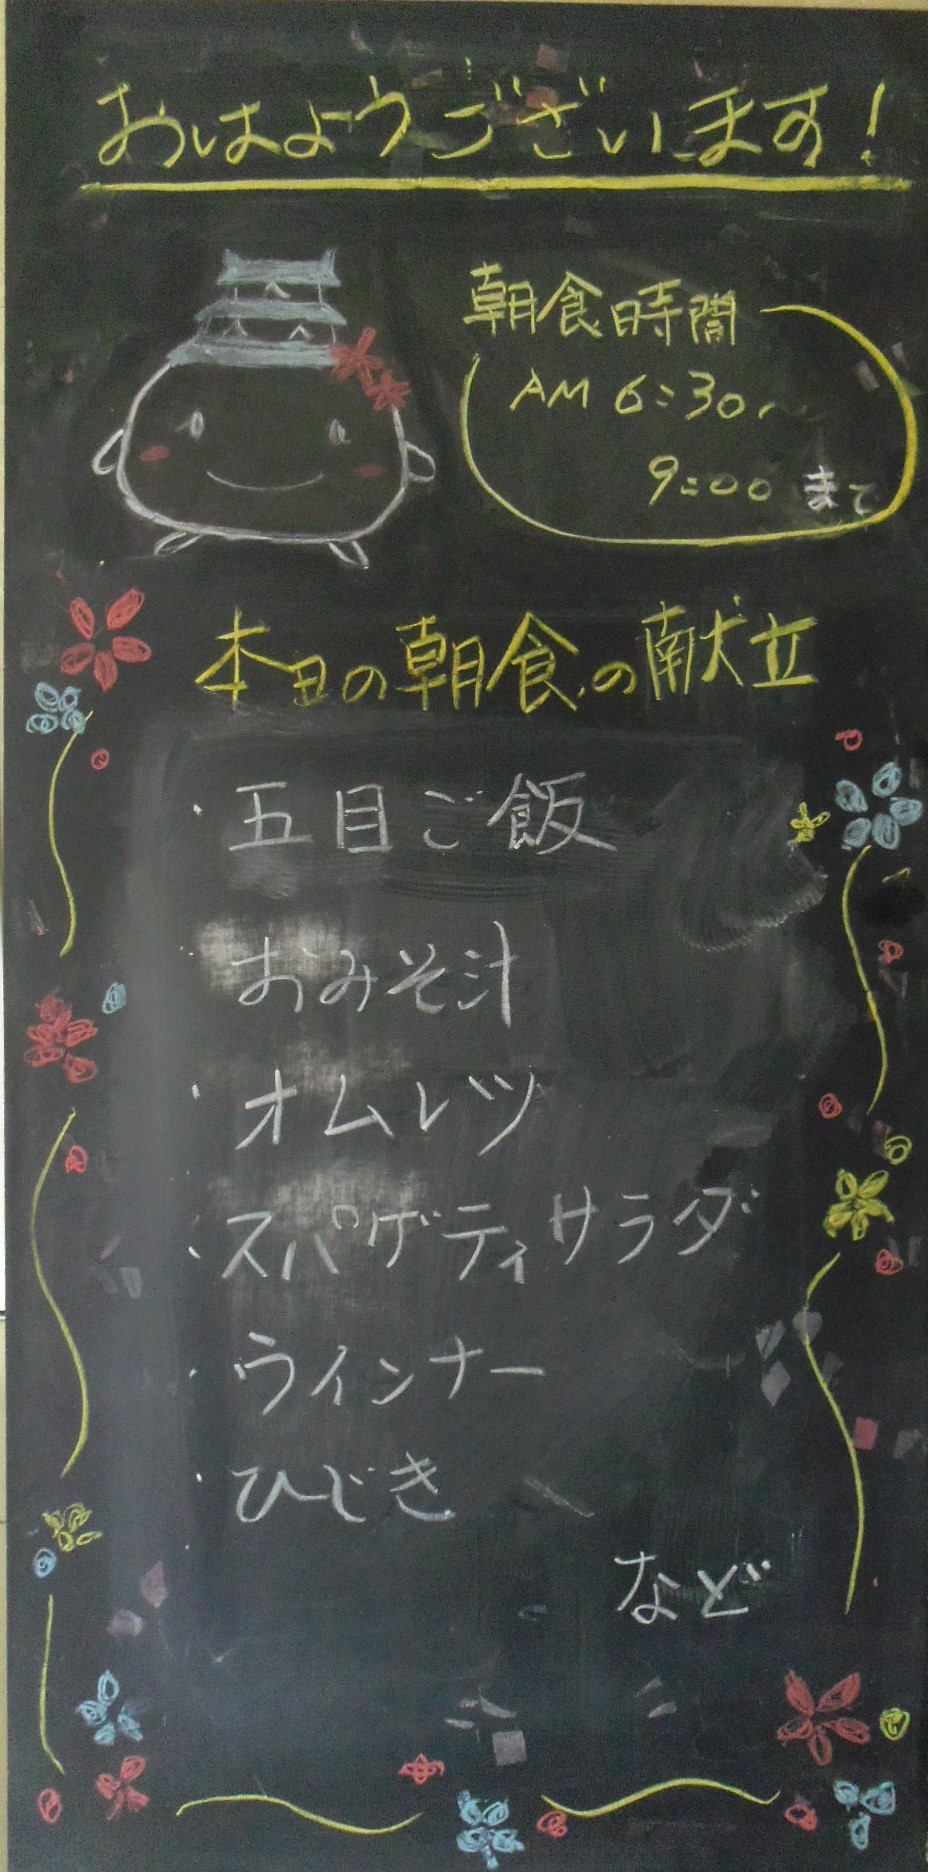 おはようございます!
朝食時間
AM 6:30〜
9:00 まで
本日の朝食の献立
・五目ご飯
・おみそ汁
・オムレツ
・スパゲティサラダ
・ウインナー
・ひじき
など